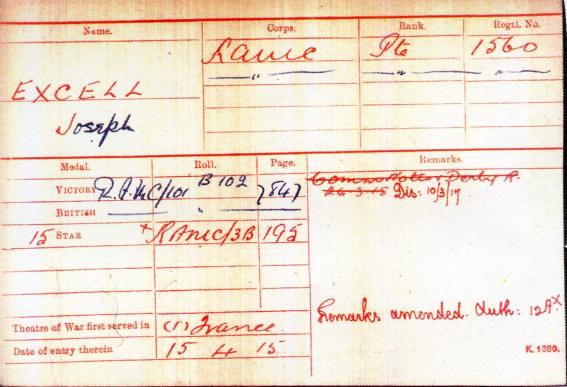 Name. Corps. Rank. Regtl. No.
RAMC Pte 1560
" " "
EXCELL
Joseph
Medal. Roll. Page. Remarks.
VICTORY R.A.M.C/101 B102 7847 Comm Notts & Derby R.
26-3-15 Dis: 10/3/17
BRITISH "
15 STAR + RAMC/3B 195
Remarks amended. Auth: 12AX
Theatre of War first served in (1) France.
Date of entry therein 15 4 15
K 1380.